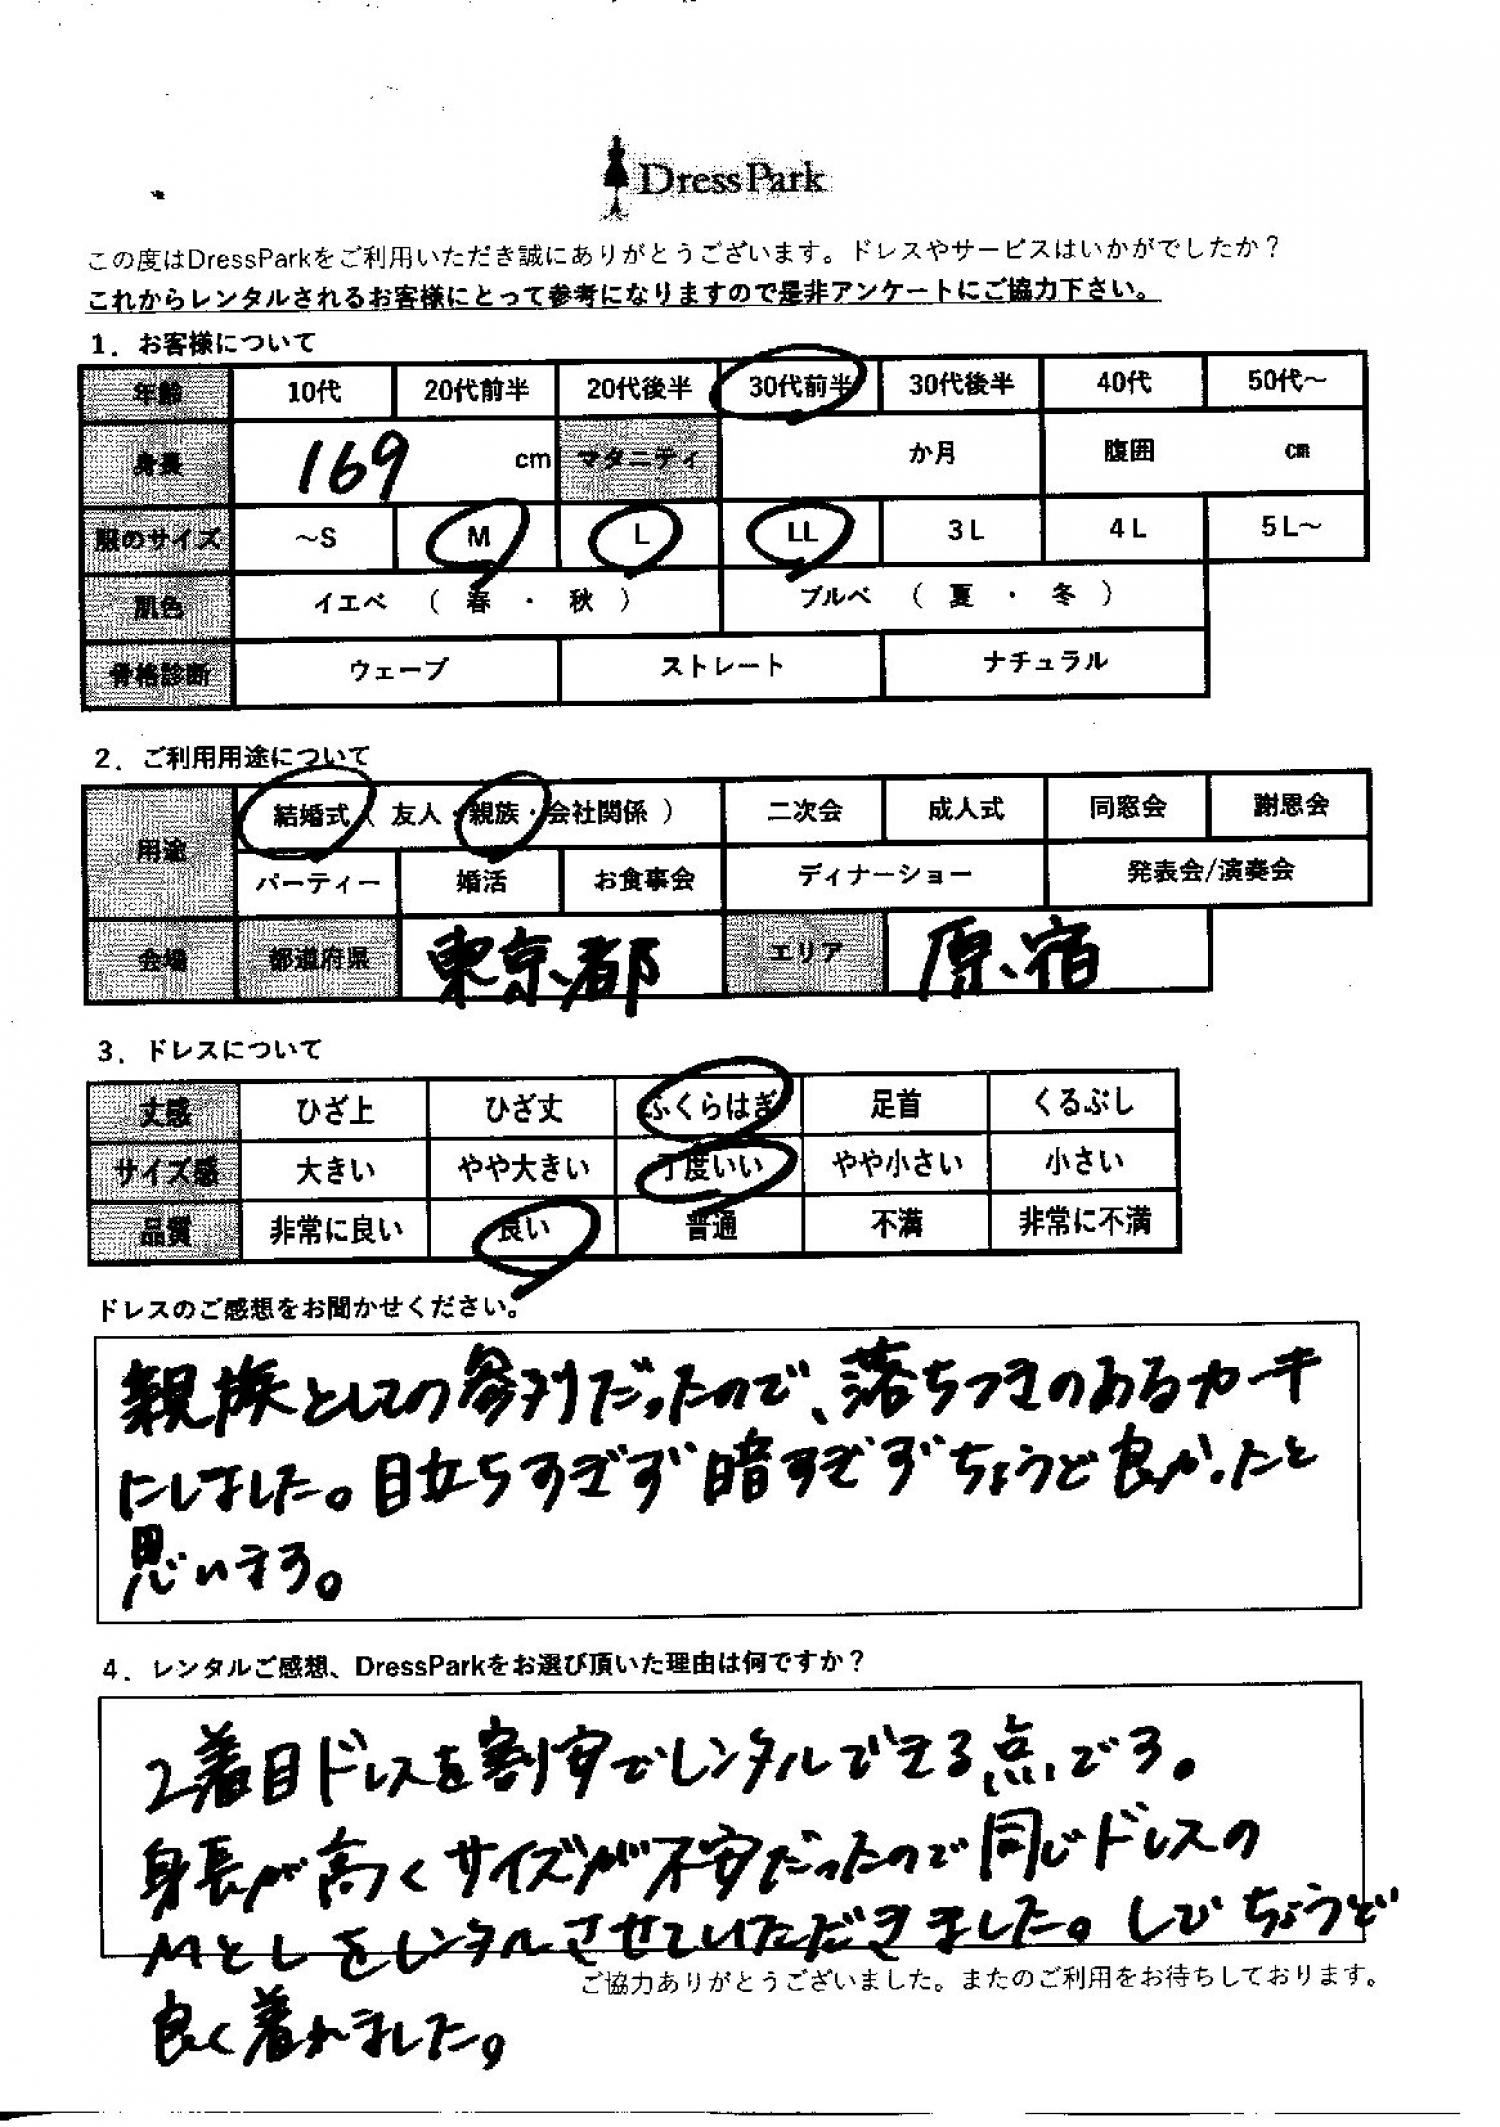 DressPark
この度はDressParkをご利用いただき誠にありがとうございます。ドレスやサービスはいかがでしたか？
これからレンタルされるお客様にとって参考になりますので是非アンケートにご協力下さい。
1．お客様について
年齢 10代 20代前半 20代後半 30代前半 30代後半 40代 50代～
身長 169 cm マタニティ か月 腹囲 cm
服のサイズ ～S M L LL 3L 4L 5L～
肌色 イエベ （ 春 ・ 秋 ） ブルベ （ 夏 ・ 冬 ）
骨格診断 ウェーブ ストレート ナチュラル
2．ご利用用途について
用途 結婚式（ 友人・親族・会社関係 ） 二次会 成人式 同窓会 謝恩会
パーティー 婚活 お食事会 ディナーショー 発表会/演奏会
会場 都道府県 東京都 エリア 原宿
3．ドレスについて
丈感 ひざ上 ひざ丈 ふくらはぎ 足首 くるぶし
サイズ感 大きい やや大きい 丁度いい やや小さい 小さい
品質 非常に良い 良い 普通 不満 非常に不満
ドレスのご感想をお聞かせください。
親族としての参列だったので、落ちつきのあるカーキ
にしました。目立ちすぎず暗すぎずちょうど良かったと
思います。
4．レンタルご感想、DressParkをお選び頂いた理由は何ですか？
2着目ドレスを割安でレンタルできる点です。
身長が高くサイズが不安だったので同じドレスの
MとLをレンタルさせていただきました。Lがちょうど
ご協力ありがとうございました。またのご利用をお待ちしております。
良く着れました。